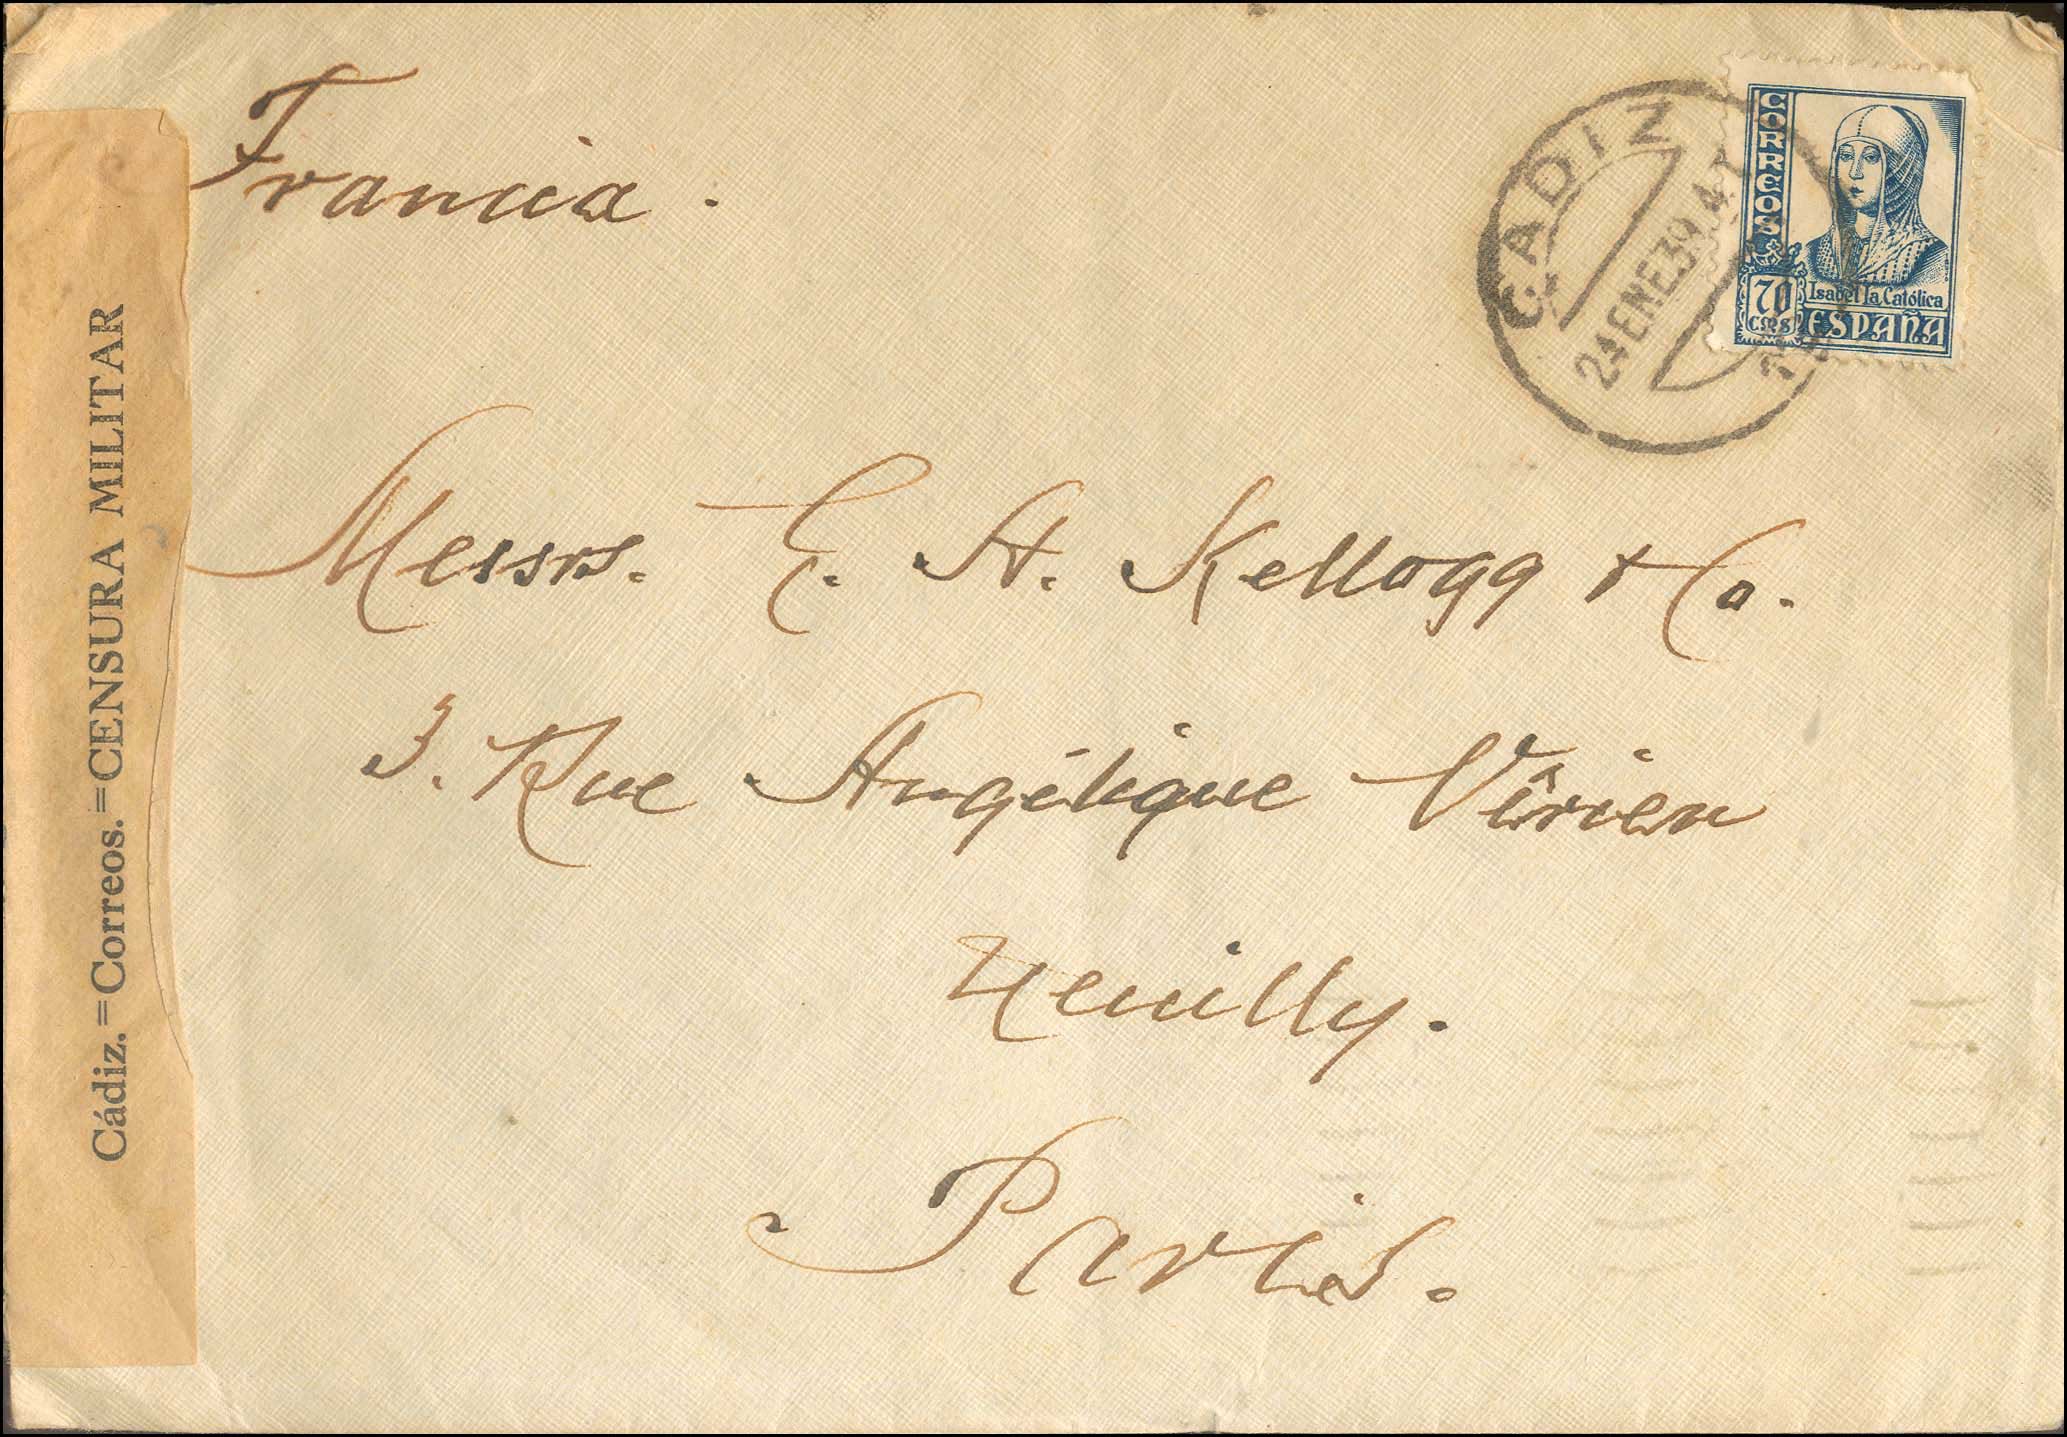 Francia.
CORREOS
Isabel la Católica
70 CMS ESPAÑA
CADIZ
24 ENE 39.4.T
Messrs. E. A. Kellogg & Co.
3. Rue Angélique Vérien
Neuilly.
Paris.
Cádiz.=Correos.=CENSURA MILITAR